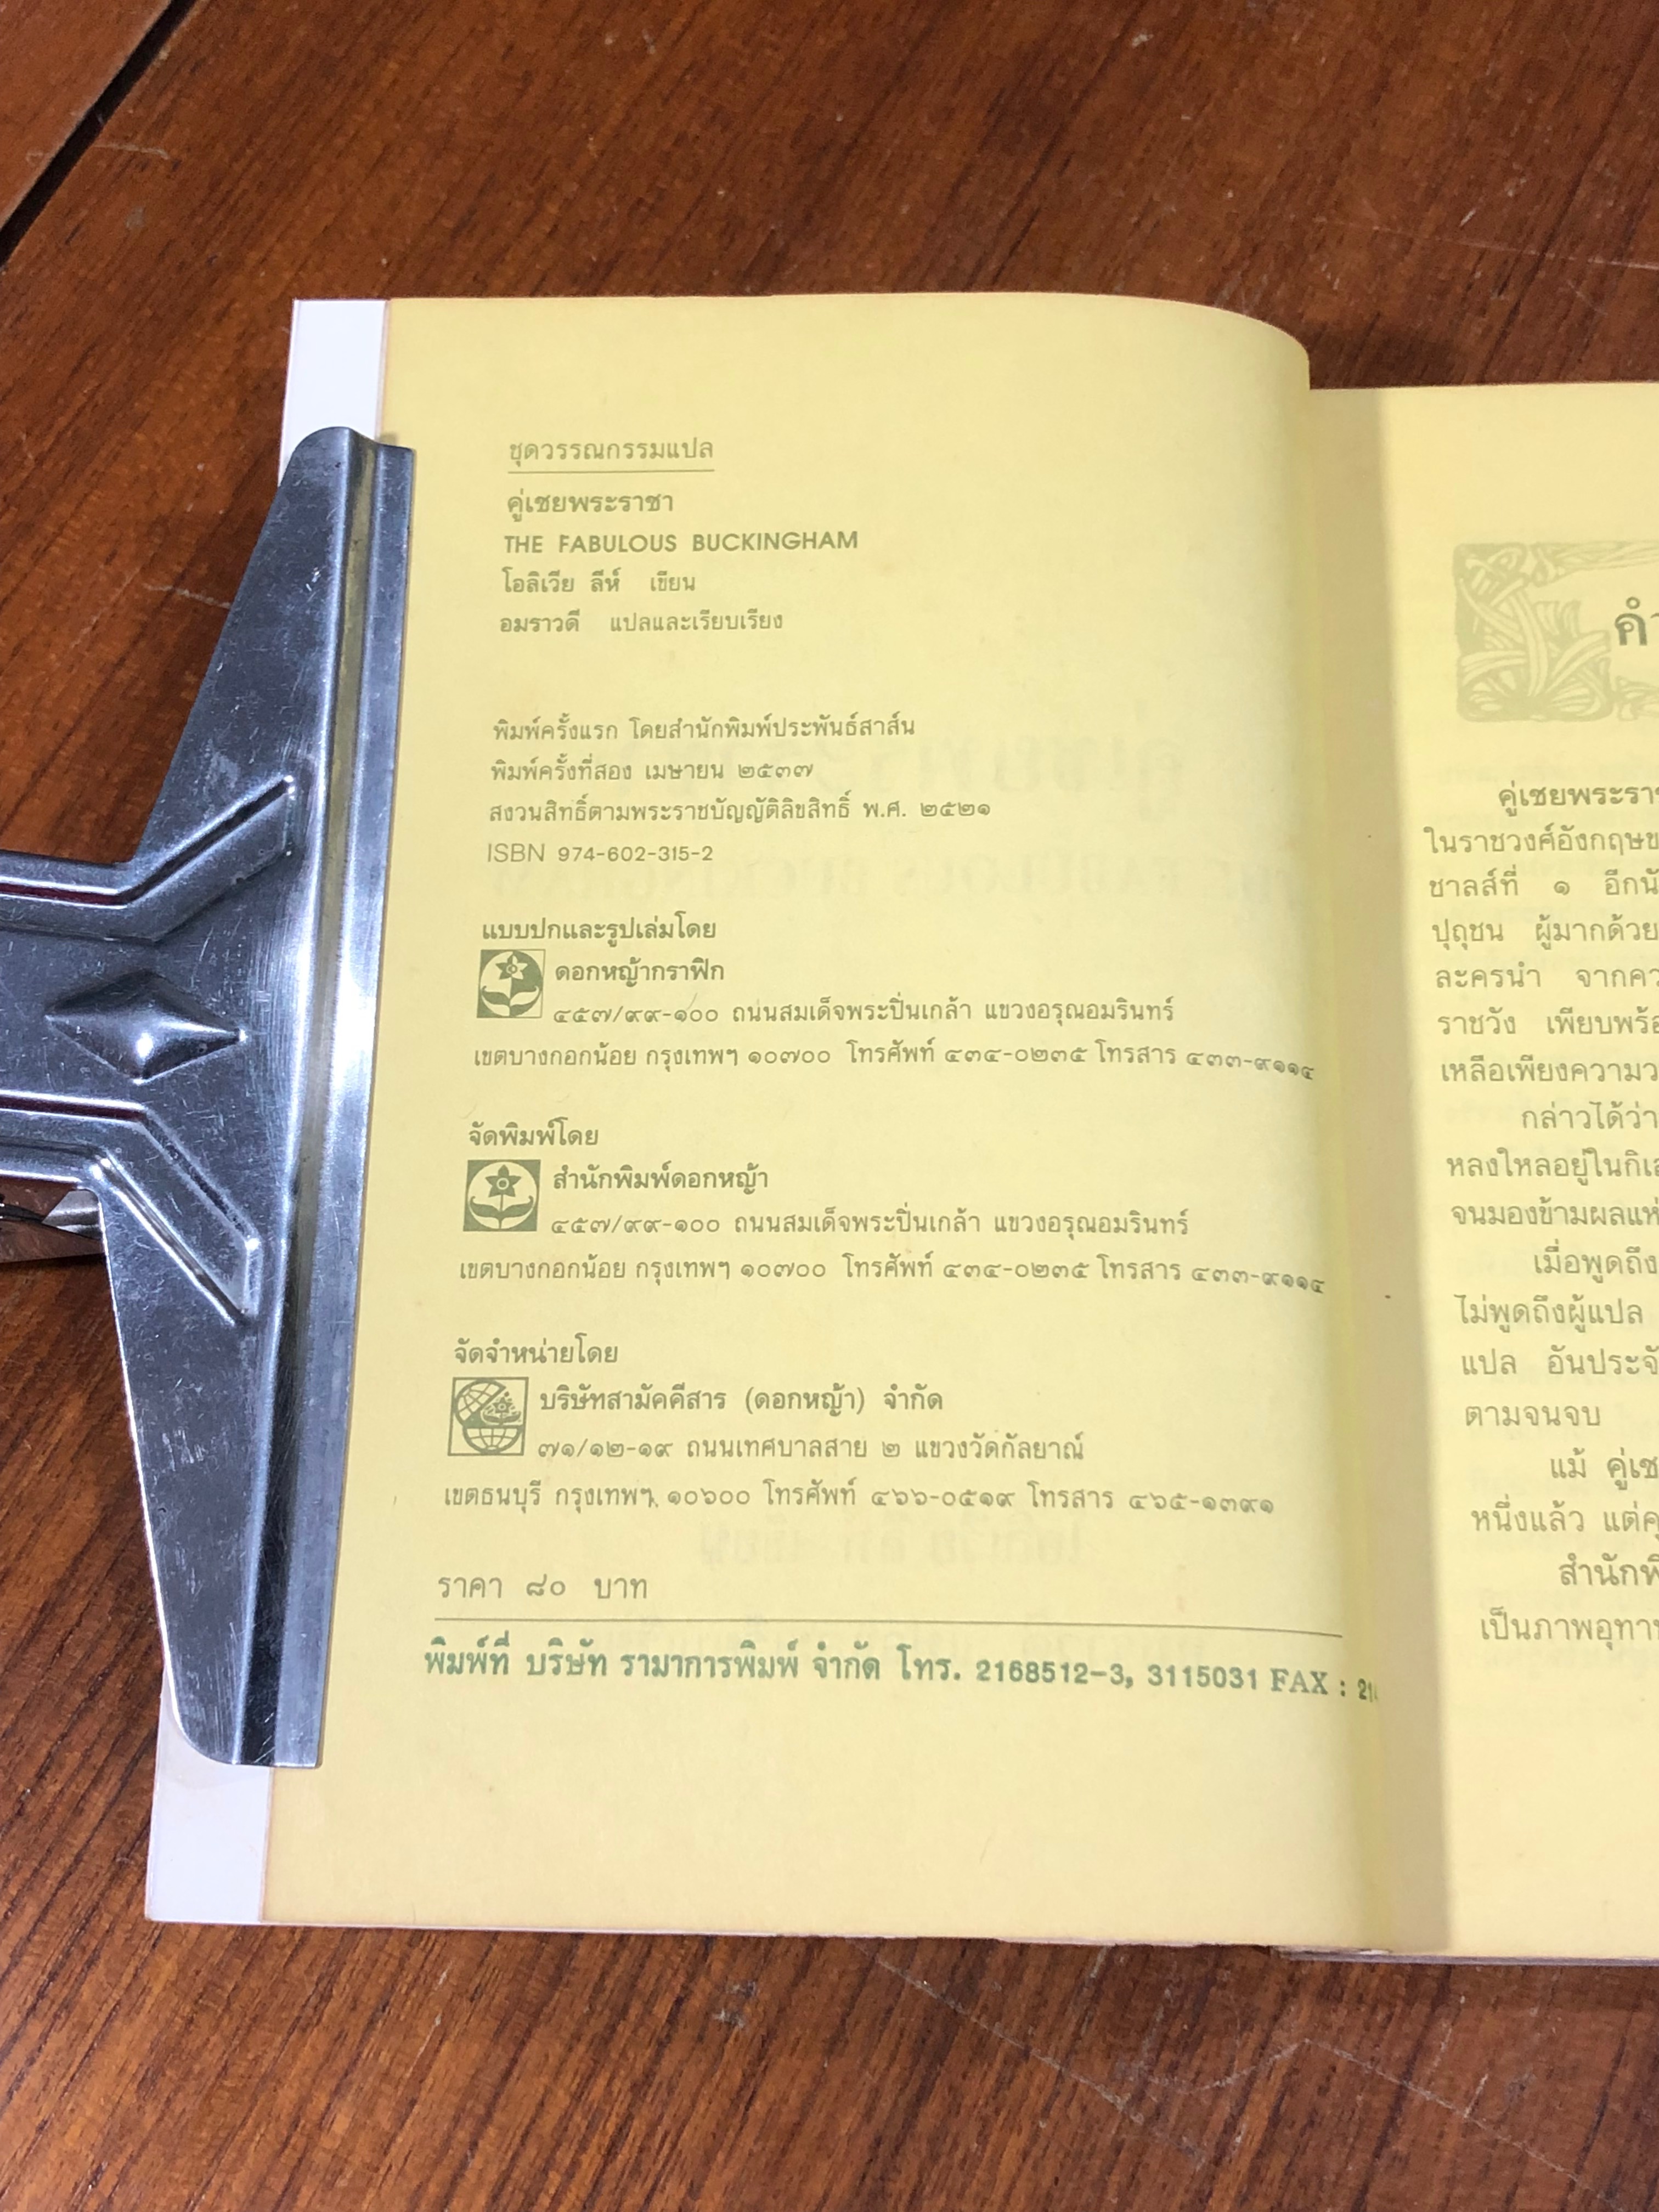 ชุดวรรณกรรมแปล
คู่เชยพระราชา
THE FABULOUS BUCKINGHAM
โอลิเวีย ลีห์ เขียน
อมราวดี แปลและเรียบเรียง
พิมพ์ครั้งแรก โดยสำนักพิมพ์ประพันธ์สาส์น
พิมพ์ครั้งที่สอง เมษายน ๒๕๓๗
สงวนสิทธิ์ตามพระราชบัญญัติลิขสิทธิ์ พ.ศ. ๒๕๒๑
ISBN 974-602-315-2
แบบปกและรูปเล่มโดย
ดอกหญ้ากราฟิก
๔๕๗/๙๙-๑๐๐ ถนนสมเด็จพระปิ่นเกล้า แขวงอรุณอมรินทร์
เขตบางกอกน้อย กรุงเทพฯ ๑๐๗๐๐ โทรศัพท์ ๔๓๔-๐๒๓๕ โทรสาร ๔๓๓-๙๑๑๔
จัดพิมพ์โดย
สำนักพิมพ์ดอกหญ้า
๔๕๗/๙๙-๑๐๐ ถนนสมเด็จพระปิ่นเกล้า แขวงอรุณอมรินทร์
เขตบางกอกน้อย กรุงเทพฯ ๑๐๗๐๐ โทรศัพท์ ๔๓๔-๐๒๓๕ โทรสาร ๔๓๓-๙๑๑๔
จัดจำหน่ายโดย
บริษัทสามัคคีสาร (ดอกหญ้า) จำกัด
๗๑/๑๒-๑๙ ถนนเทศบาลสาย ๒ แขวงวัดกัลยาณ์
เขตธนบุรี กรุงเทพฯ ๑๐๖๐๐ โทรศัพท์ ๔๖๖-๐๕๑๙ โทรสาร ๔๖๕-๑๓๙๑
ราคา ๘๐ บาท
พิมพ์ที่ บริษัท รามาการพิมพ์ จำกัด โทร. 2168512-3, 3115031 FAX :
คู่เชยพระรา
ในราชวงศ์อังกฤษ
ชาลส์ที่ ๑ อีก
ปุถุชน ผู้มากด้วย
ละครนำ จาก
ราชวัง เพียบพร้
เหลือเพียงความ
กล่าวได้ว่า
หลงใหลอยู่ในกิเ
จนมองข้ามผลแห่
เมื่อพูดถึง
ไม่พูดถึงผู้แปล
แปล อันประจั
ตามจนจบ
แม้ คู่เช
หนึ่งแล้ว แต่
สำนักพิ
เป็นภาพอุทา